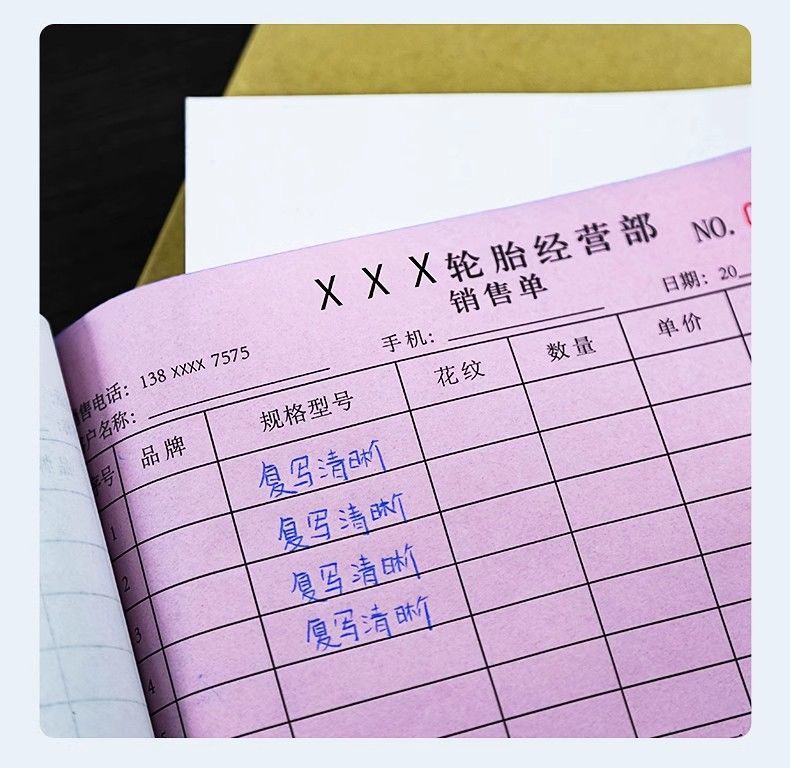 XXX轮胎经营部 NO.
销售单
日期：20
售电话：138 xxxx 7575
手机：
户名称：
序号 品牌 规格型号 花纹 数量 单价
1 复写清晰
2 复写清晰
3 复写清晰
4 复写清晰